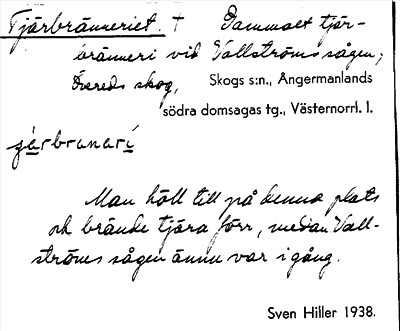 Tjärbränneriet. † Gammalt tjär-
bränneri vid Vallströmssågen;
skog, Skogs s:n, Ångermanlands
södra domsagas tg., Västernorrl. l.
Man höll till på denna plats
och brände tjära förr, medan Vall-
ströms sågen ännu var igång.
Sven Hiller 1938.